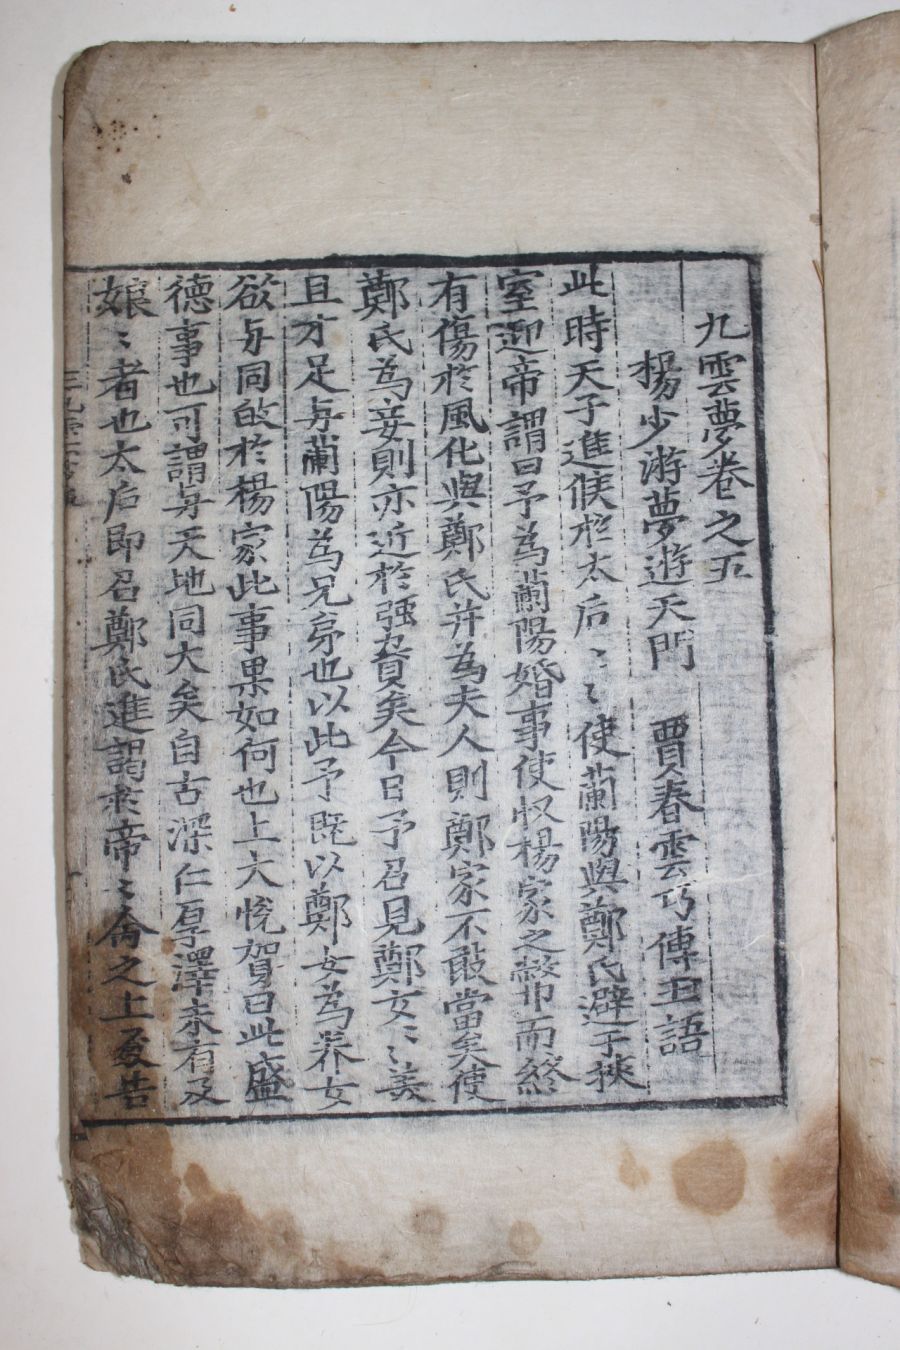 九雲夢卷之五
楊少游夢遊天門 賈春雲巧傳玉語
此時天子進候於太后〻〻使蘭陽與鄭氏避于挾
室迎帝謂曰予爲蘭陽婚事使収楊家之幣而終
有傷於風化與鄭氏并爲夫人則鄭家不敢當矣使
鄭氏爲妾則亦近於强脅矣今日予召見鄭女〻〻美
且才足与蘭陽爲兄弟也以此予既以鄭女爲养女
欲与同故於楊家此事果如何也上大悅賀曰此盛
德事也可謂与天地同大矣自古深仁厚澤未有及
娘〻者也太后即召鄭氏進謁帝〻命之上
告